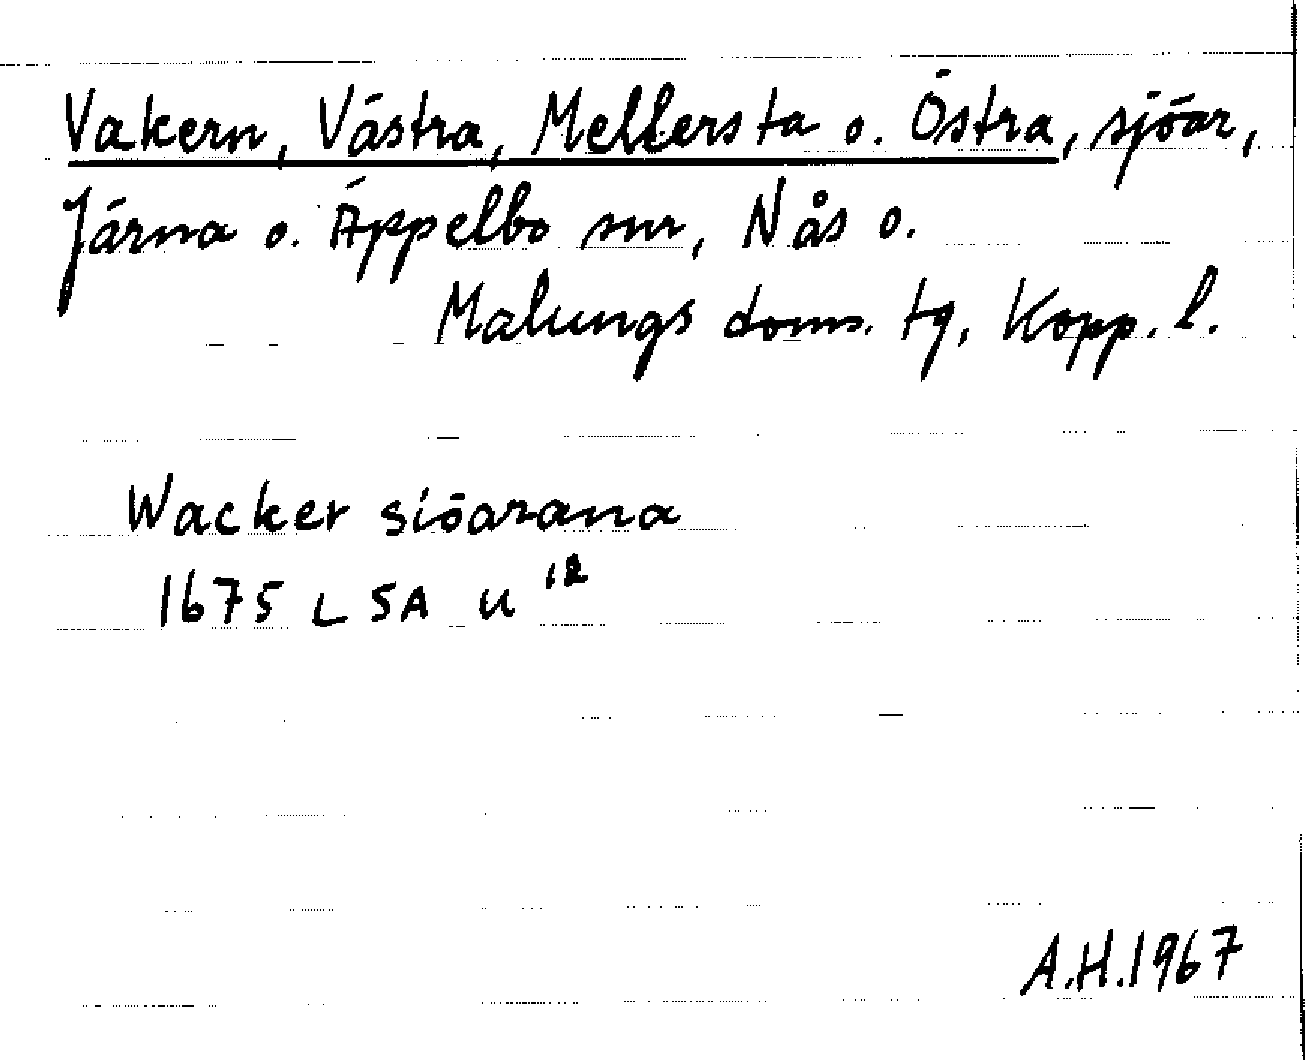 Vakern, Västra, Mellersta o. Östra, sjöar,
Järna o. Äppelbo snr, Nås o.
Malungs doms. tg, Kopp. l.
Wacker siöarana
1675 LSA U 12
A.H. 1967